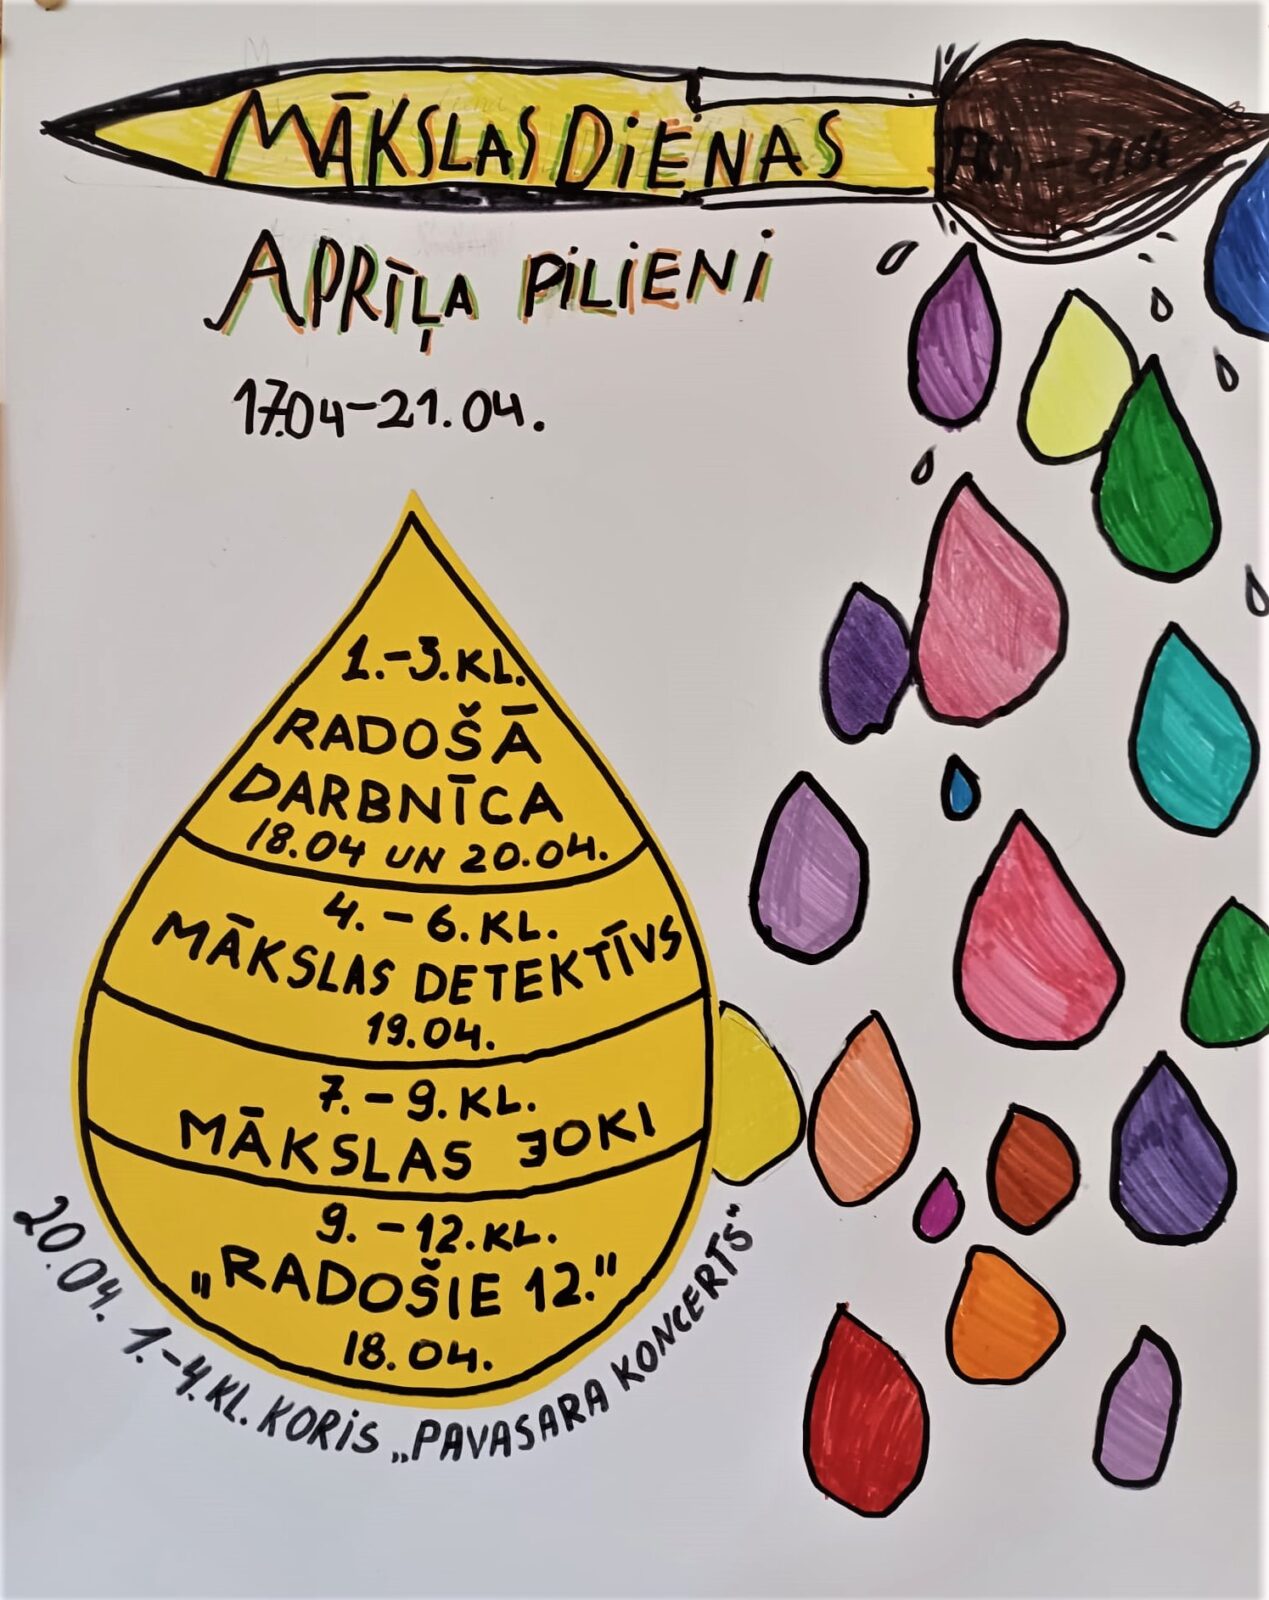 MĀKSLAS DIENAS
APRĪĻA PILIENI
17.04-21.04.
1.-3.KL.
RADOŠĀ
DARBNĪCA
18.04 UN 20.04.
4.-6.KL.
MĀKSLAS DETEKTĪVS
19.04.
7.-9.KL.
MĀKSLAS JOKI
9.-12.KL.
„RADOŠIE 12."
18.04.
20.04. 1.-4.KL. KORIS „PAVASARA KONCERTS"